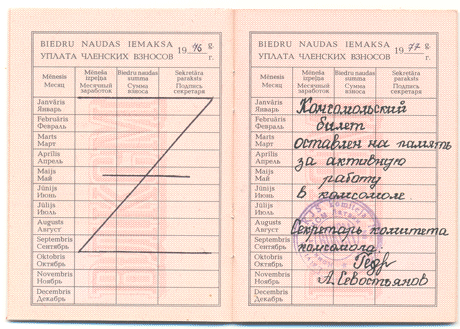 BIEDRU NAUDAS IEMAKSA
УПЛАТА ЧЛЕНСКИХ ВЗНОСОВ
1976 g.
г.
Mēnesis
Месяц
Mēneša izpeļņa
Месячный заработок
Biedru naudas summa
Сумма взноса
Sekretāra paraksts
Подпись секретаря
Janvāris
Январь
Februāris
Февраль
Marts
Март
Aprīlis
Апрель
Maijs
Май
Jūnijs
Июнь
Jūlijs
Июль
Augusts
Август
Septembris
Сентябрь
Oktobris
Октябрь
Novembris
Ноябрь
Decembris
Декабрь
BIEDRU NAUDAS IEMAKSA
УПЛАТА ЧЛЕНСКИХ ВЗНОСОВ
1977 g.
г.
Mēnesis
Месяц
Mēneša izpeļņa
Месячный заработок
Biedru naudas summa
Сумма взноса
Sekretāra paraksts
Подпись секретаря
Janvāris
Январь
Februāris
Февраль
Marts
Март
Aprīlis
Апрель
Maijs
Май
Jūnijs
Июнь
Jūlijs
Июль
Augusts
Август
Septembris
Сентябрь
Oktobris
Октябрь
Novembris
Ноябрь
Decembris
Декабрь
Комсомольский
билет
оставлен на память
за активную
работу
в комсомоле
Секретарь комитета
комсомола:
А. Севостьянов